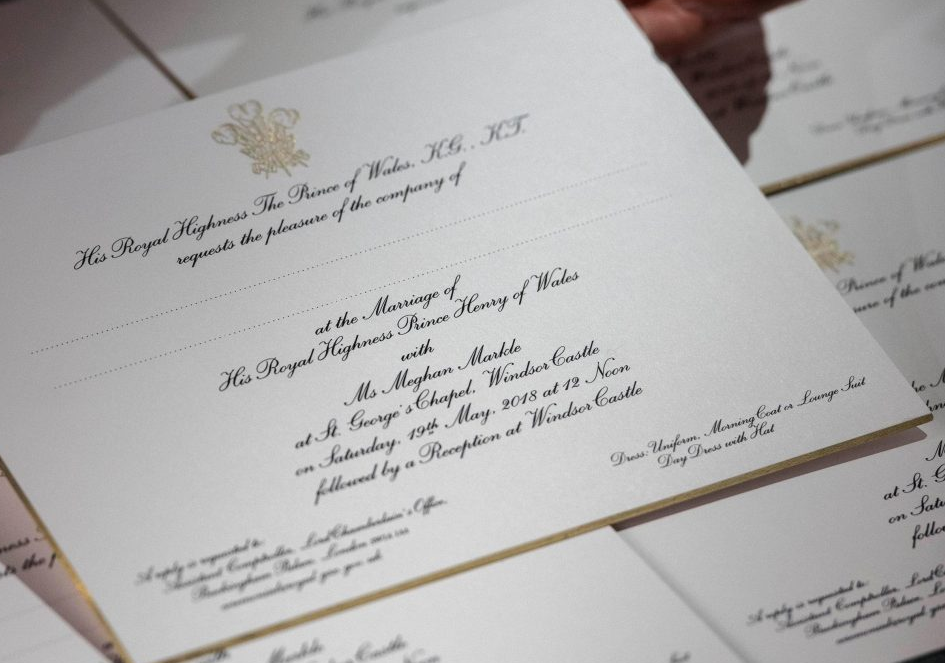 His Royal Highness The Prince of Wales, K.G., K.T.
requests the pleasure of the company of
at the Marriage of
His Royal Highness Prince Henry of Wales
with
Ms Meghan Markle
at St. George's Chapel, Windsor Castle
on Saturday, 19th May, 2018 at 12 Noon
followed by a Reception at Windsor Castle
Dress: Uniform, Morning Coat or Lounge Suit
Day Dress with Hat
A reply is requested to:
Invitations Comptroller, Lord Chamberlain's Office,
Buckingham Palace, London
Prince of Wales
at St. G
on Satu
follow
A reply is requested to:
Buckingham Palace, L
Markle
Castle